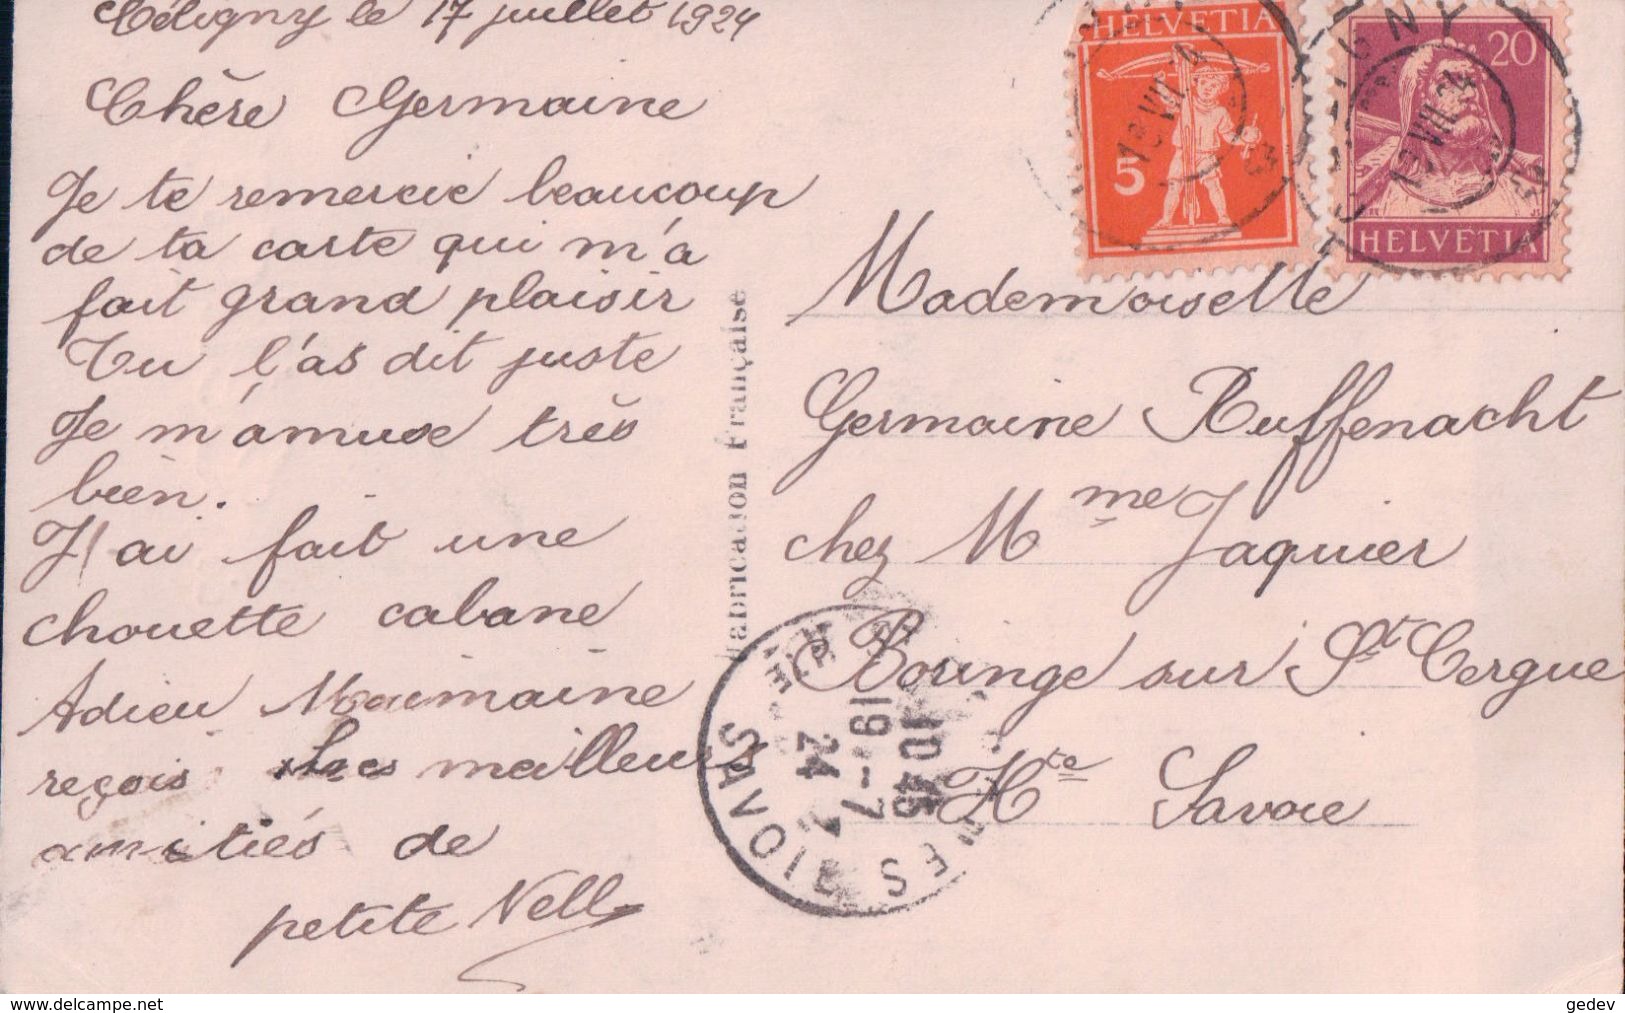 Céligny le 17 juillet 1924
Chère Germaine
Je te remercie beaucoup
de ta carte qui m'a
fait grand plaisir
Tu l'as dit juste
Je m'amuse très
bien.
J'ai fait une
chouette cabane
Adieu Maimaine
reçois les meilleurs
amitiés de
petite Nelly
Fabrication Française
HELVETIA
5
20
HELVETIA
18 VII 24
18 VII 24
Mademoiselle
Germaine Ruffenacht
chez Mme Jaquier
Boringe sur St Cergue
Hte Savoie
10 45
19 - 7
24
SAVOIE
delcampe.net
gedev